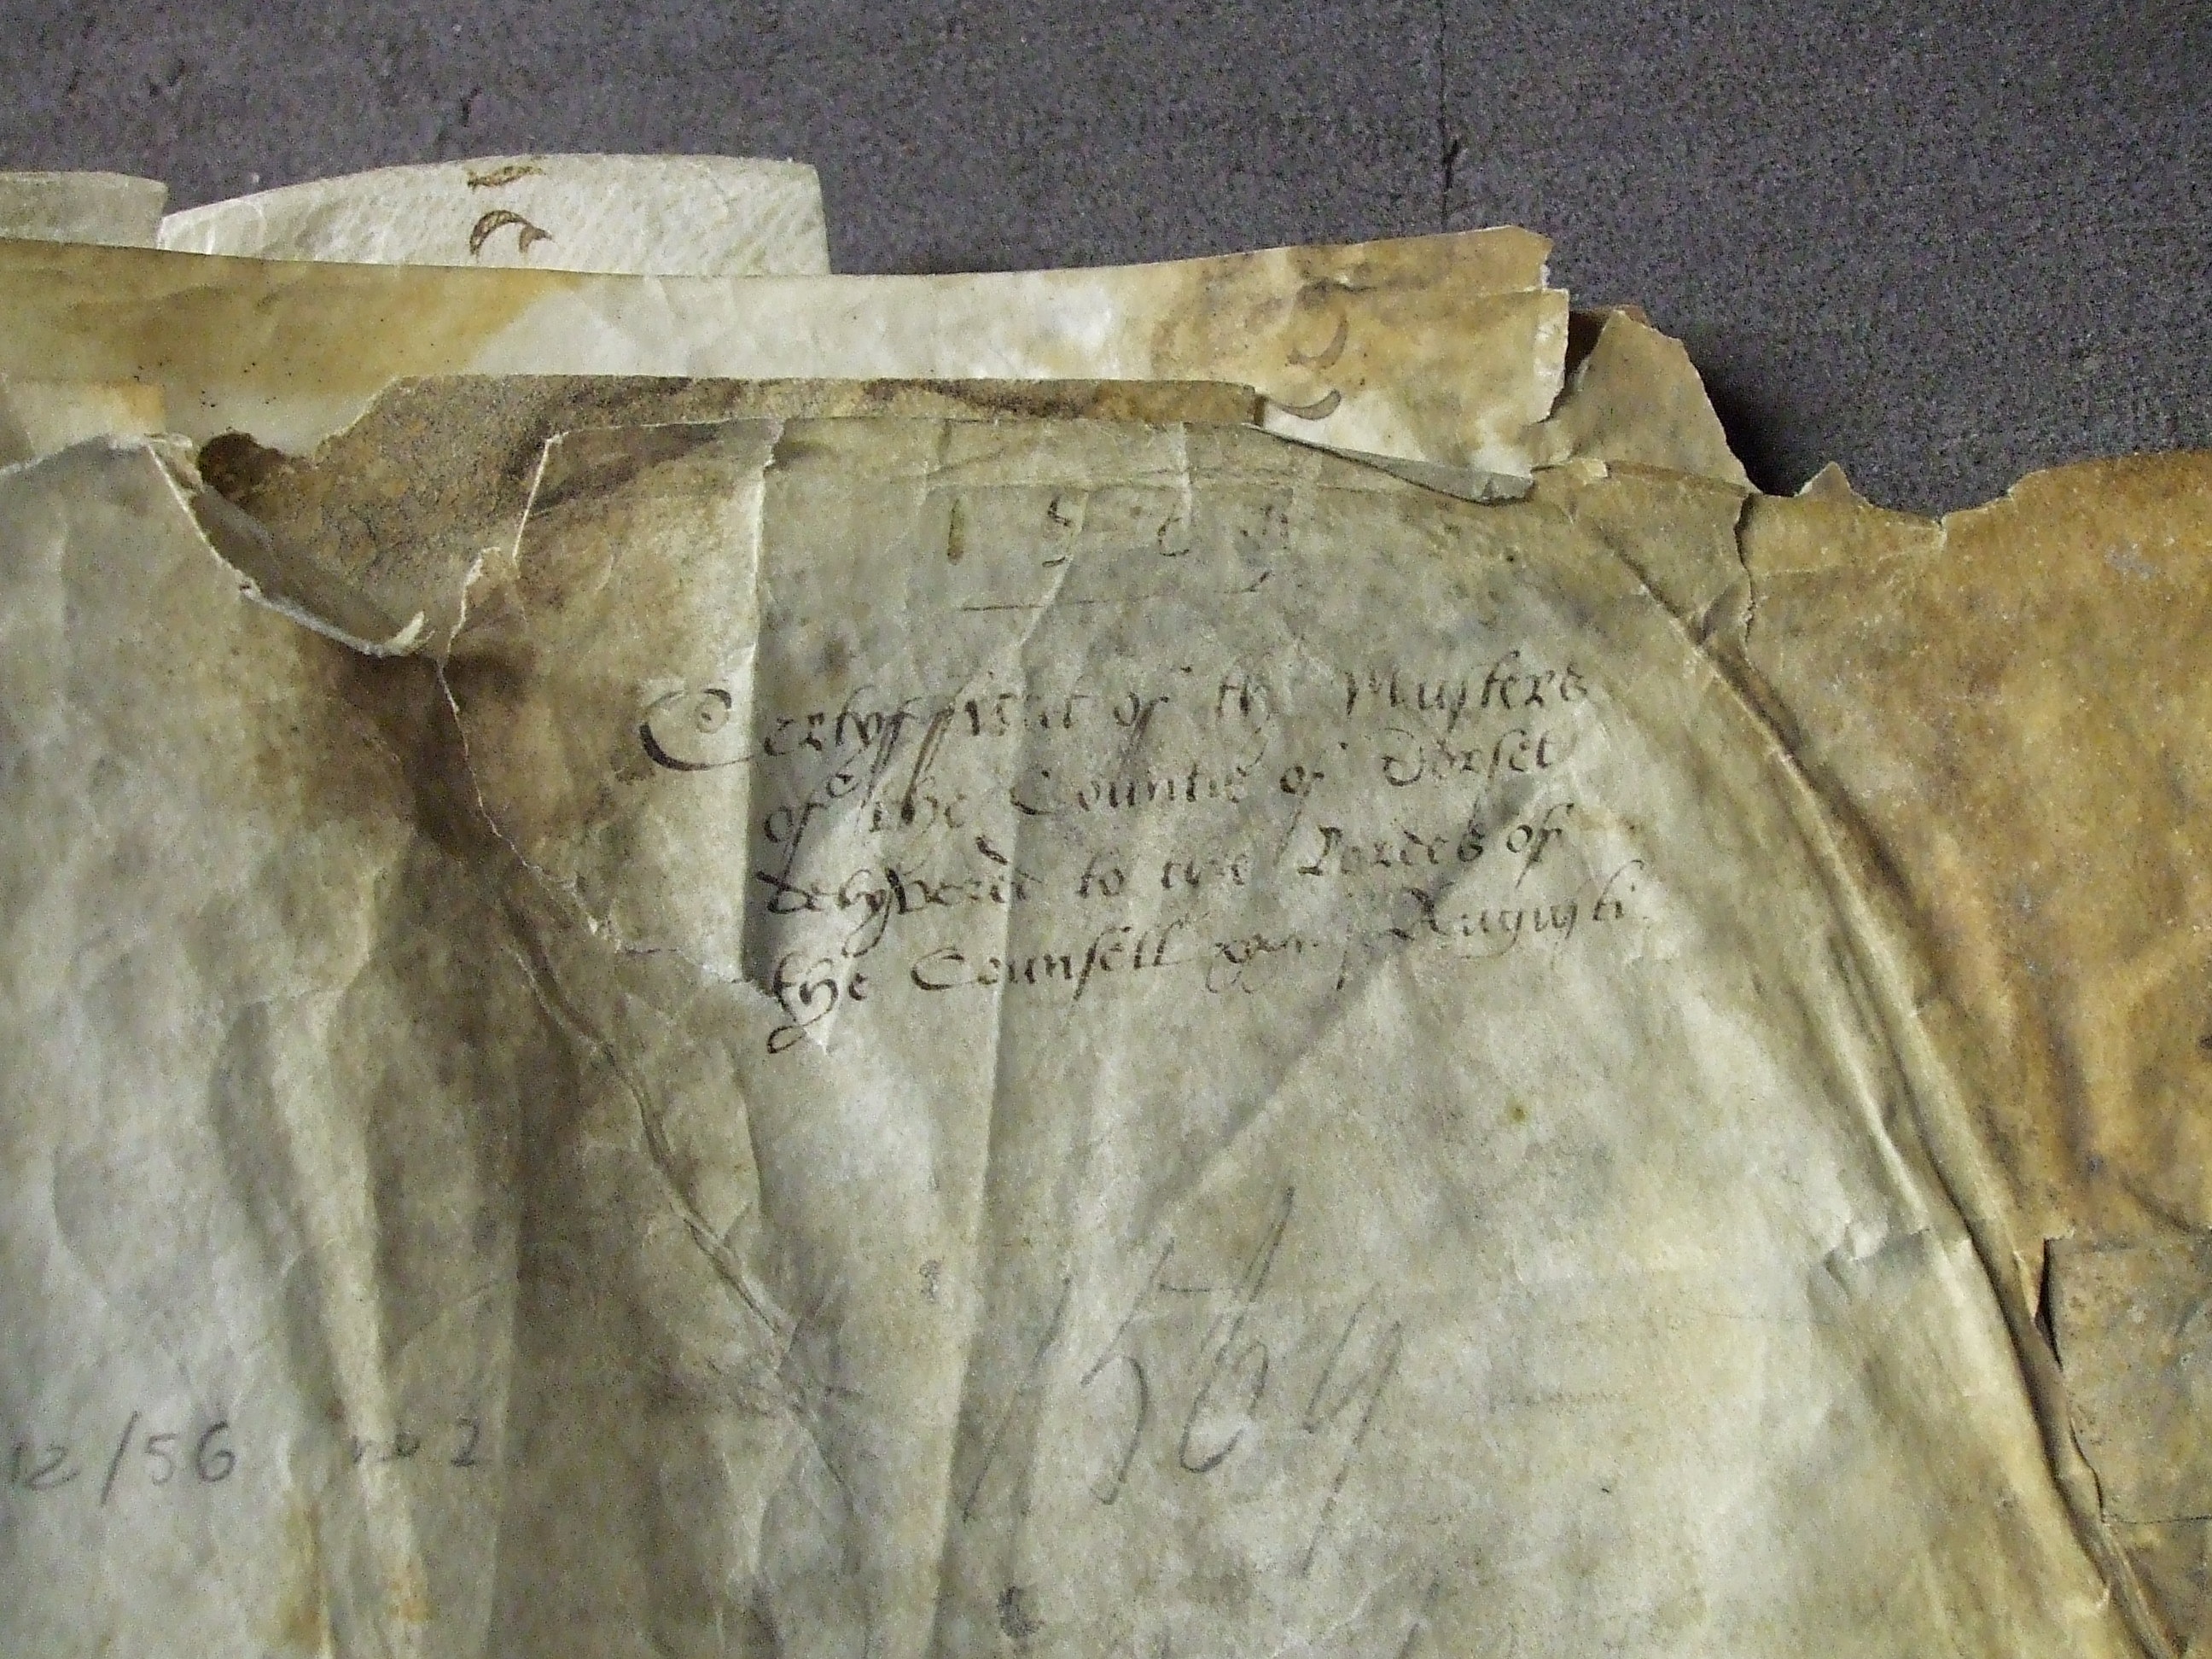 Certyfficat of the Musters
of the Countie of Dorset
delyvered to the Lordes of
the Counsell Augusti
1569
12/56 no 2